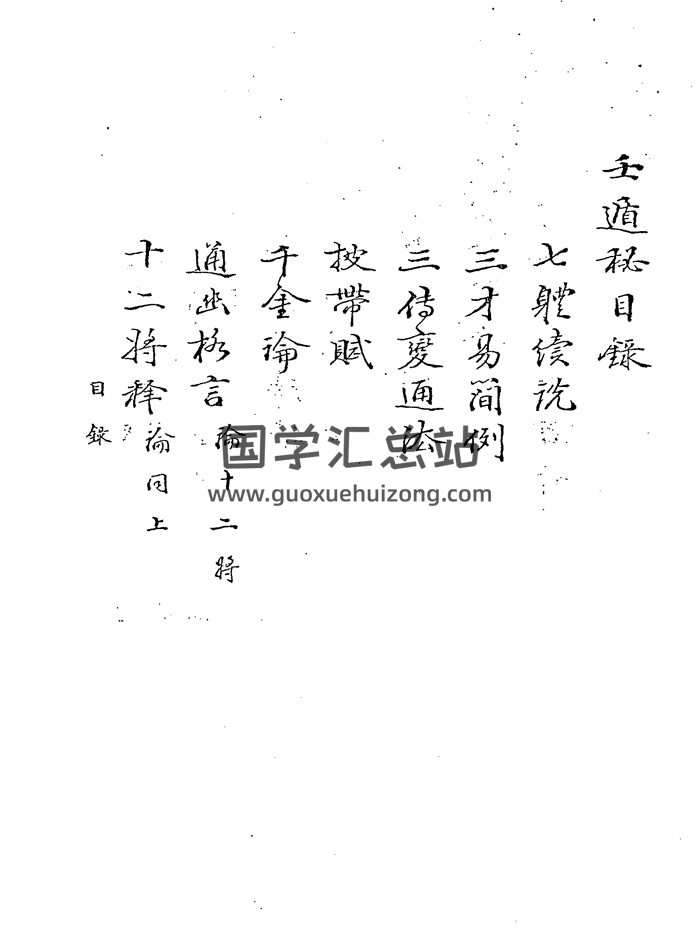 壬遁秘目錄
七體续説
三才易簡例
三傳變通法
披帶賦
千金論
通幽格言 論十二將
十二將释 論同上
目錄
国学汇总站
www.guoxuehuizong.com